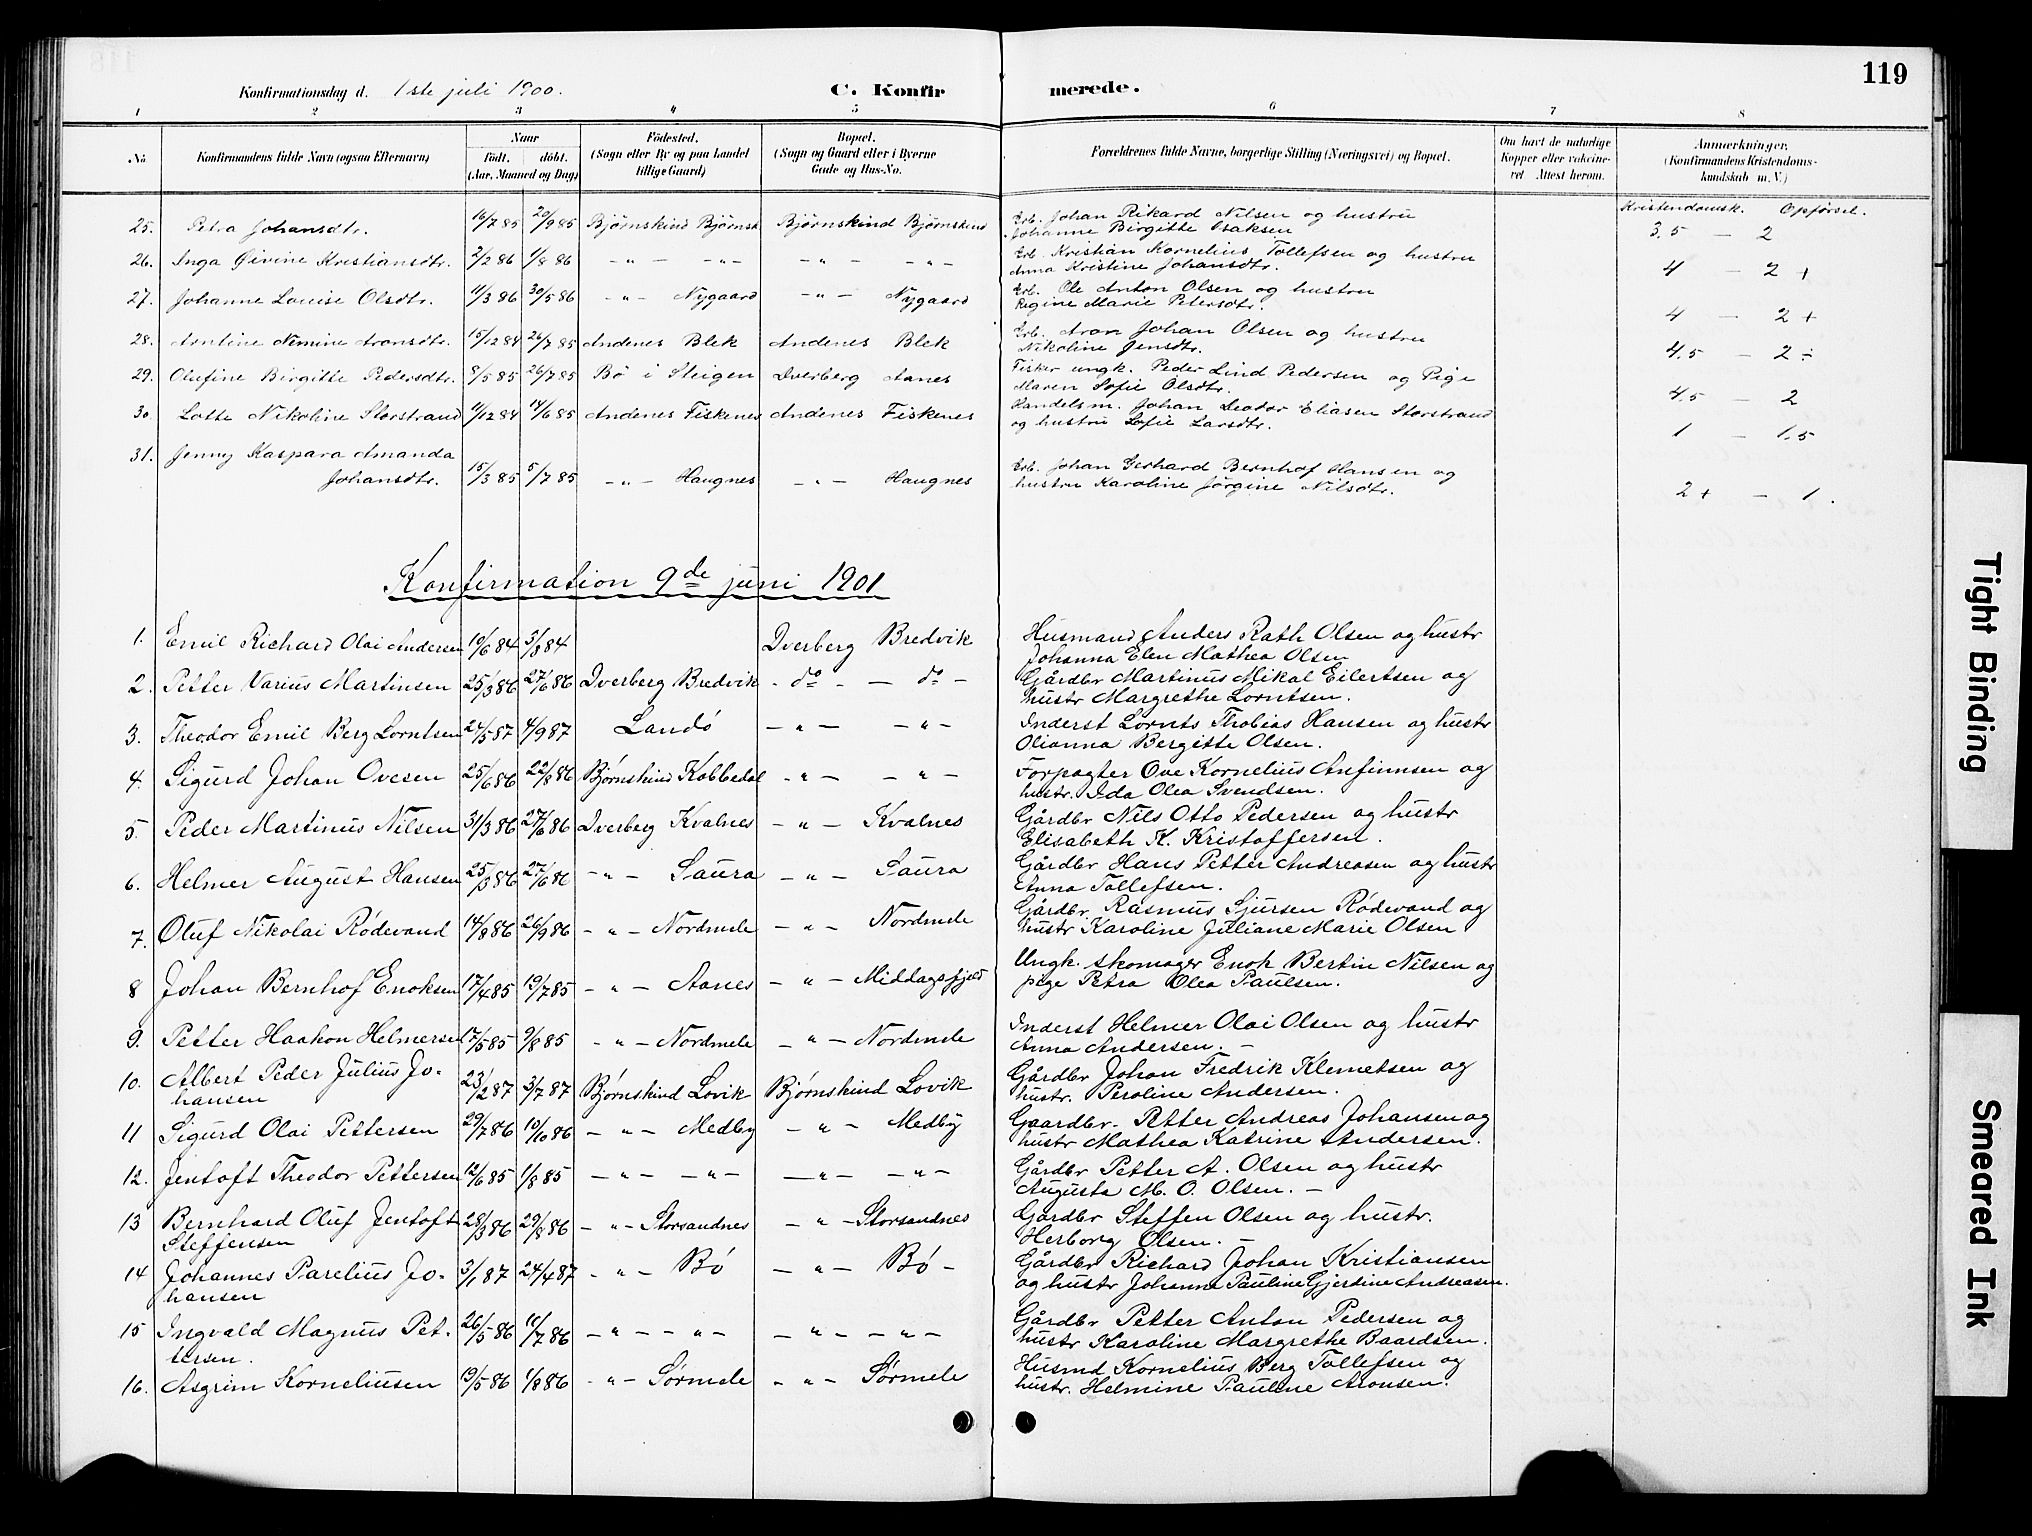 119
Konfirmationsdag d. 1ste juli 1900. C. Konfirmerede.
1 2 3 4 5 6 7 8
No. Konfirmandens fulde Navn (ogsaa Efternavn) Naar født. døbt. (Aar, Maaned og Dag) Fødested. (Sogn eller By og paa Landet tillige Gaard) Bopæl. (Sogn og Gaard eller i Byerne Gade og Hus-No. Forældrenes fulde Navne, borgerlige Stilling (Næringsvei) og Bopæl. Om havt de naturlige Kopper eller vakcineret Attest herom. Anmærkninger. (Konfirmandens Kristendomskundskab m. V.)
Kristendomsk. Opførsel.
25. Petra Johansdtr. 16/7 85 20/9 85 Bjørnskind Bjørnsk Bjørnskind Bjørnskind Erb. Johan Rikard Nilsen og hustru
Johanne Birgitte Isaksen 3.5 — 2
26. Inga Givine Kristiansdtr. 2/2 86 1/8 86 -"- -"- -"- -"- Erb. Kristian Kornelius Tollefsen og hustru
Anna Kristine Johansdtr. 4 — 2 +
27. Johanne Louise Olsdtr. 11/3 86 30/5 86 -"- Nygaard -"- Nygaard Erb. Ole Anton Olsen og hustru
Regine Marie Petersdtr. 4 — 2 +
28. Arntine Nemine Aronsdtr. 15/12 84 26/7 85 Andenes Blek Andenes Blek Erb. Aron Johan Olsen og hustru
Nikoline Jensdtr. 4.5 — 2 ÷
29. Olufine Birgitte Pedersdtr. 8/5 85 26/7 85 Bø i Steigen Dverberg Aanes Fisker ungk. Peder Lind Pedersen og Pige
Maren Sofie Olsdtr. 4.5 — 2
30. Lotte Nikoline Storstrand 11/12 84 14/6 85 Andenes Fiskenes Andenes Fiskenes Handelsm. Johan Teodor Eliasen Storstrand
og hustru Sofie Larsdtr. 1 — 1.5
31. Jenny Kaspara Amanda
Johansdtr. 15/3 85 5/7 85 -"- Haugnes -"- Haugnes Erb. Johan Gerhard Bernhof Hansen og
hustru Karoline Jørgine Nilsdtr. 2 + — 1.
Konfirmation 9de juni 1901
1. Emil Richard Olai Andersen 10/6 84 3/8 84 Dverberg Bredvik Husmand Anders Rath Olsen og hustr
Johanna Elen Mathea Olsen
2. Petter Varius Martinsen 25/3 86 27/6 86 Dverberg Bredvik - do - - do - Gårdbr Martinus Mikal Eilertsen og
hustr Margrethe Lorntsen.
3. Theodor Emil Berg Lorntsen 24/5 87 4/9 87 Landö -"- -"- Inderst Lornts Thobias Hansen og hustr
Olianna Bergitte Olsen.
4. Sigurd Johan Ovesen 25/6 86 22/8 86 Bjørnskind Kobbedal -"- -"- Forpagter Ove Kornelius Anfinnsen og
hustr. Ida Olea Svendsen.
5. Peder Martinus Nilsen 31/3 86 27/6 86 Dverberg Kvalnes -"- Kvalnes Gårdbr Nils Otto Pedersen og hustr
Elisabeth K. Kristoffersen.
6. Helmer August Hansen 25/3 86 27/6 86 -"- Saura -"- Saura Gårdbr Hans Petter Andreasen og hustr
Anna Tollefsen.
7. Oluf Nikolai Rödevand 14/8 86 26/9 86 -"- Nordmele -"- Nordmele Gårdbr Rasmus Sjursen Rödevand og
hustr Karoline Juliane Marie Olsen
8 Johan Bernhof Enoksen 17/4 85 19/7 85 -"- Aanes -"- Middagsfjeld Ungk. skomager Enok Bertin Nilsen og
pige Petra Olea Paulsen.
9. Petter Haakon Helmersen 17/5 85 9/8 85 -"- Nordmele -"- Nordmele Inderst Helmer Olai Olsen og hustr
Anna Andersen. —
10. Albert Peder Julius Jo-
hansen 23/2 87 3/7 87 Bjørnskind Lovik Bjørnskind Lovik Gårdbr Johan Fredrik Klemetsen og
hustr. Peroline Andersen.
11 Sigurd Olai Pettersen 29/7 86 10/10 86 -"- Medby -"- Medby Gaardbr. Petter Andreas Johansen og
hustr Mathea Katrine Andersen.
12. Jentoft Theodor Pettersen 12/6 85 1/8 85 -"- -"- -"- -"- Gårdbr Petter A. Olsen og hustr
Augusta M. O. Olsen. —
13 Bernhard Oluf Jentoft
Steffensen 28/3 86 29/8 86 -"- Storsandnes -"- Storsandnes Gårdbr Steffen Olsen og hustr.
Herborg Olsen. —
14 Johannes Parelius Jo-
hansen 3/1 87 24/4 87 -"- Bö -"- Bö - Gårdbr Richard Johan Kristiansen
og hustr Johanna Pauline Gjertine Andreasen.
15 Ingvald Magnus Pet-
tersen. 26/5 86 11/7 86 -"- -"- -"- -"- Gårdbr Petter Anton Pedersen og
hustr Karoline Margrethe Baardsen.
16. Asgrim Korneliusen 19/5 86 1/8 86 -"- Sørmele -"- Sørmele Husmd Kornelius Berg Tollefsen og
hustr. Helmine Pauline Aronsen.
Tight Binding
Smeared Ink